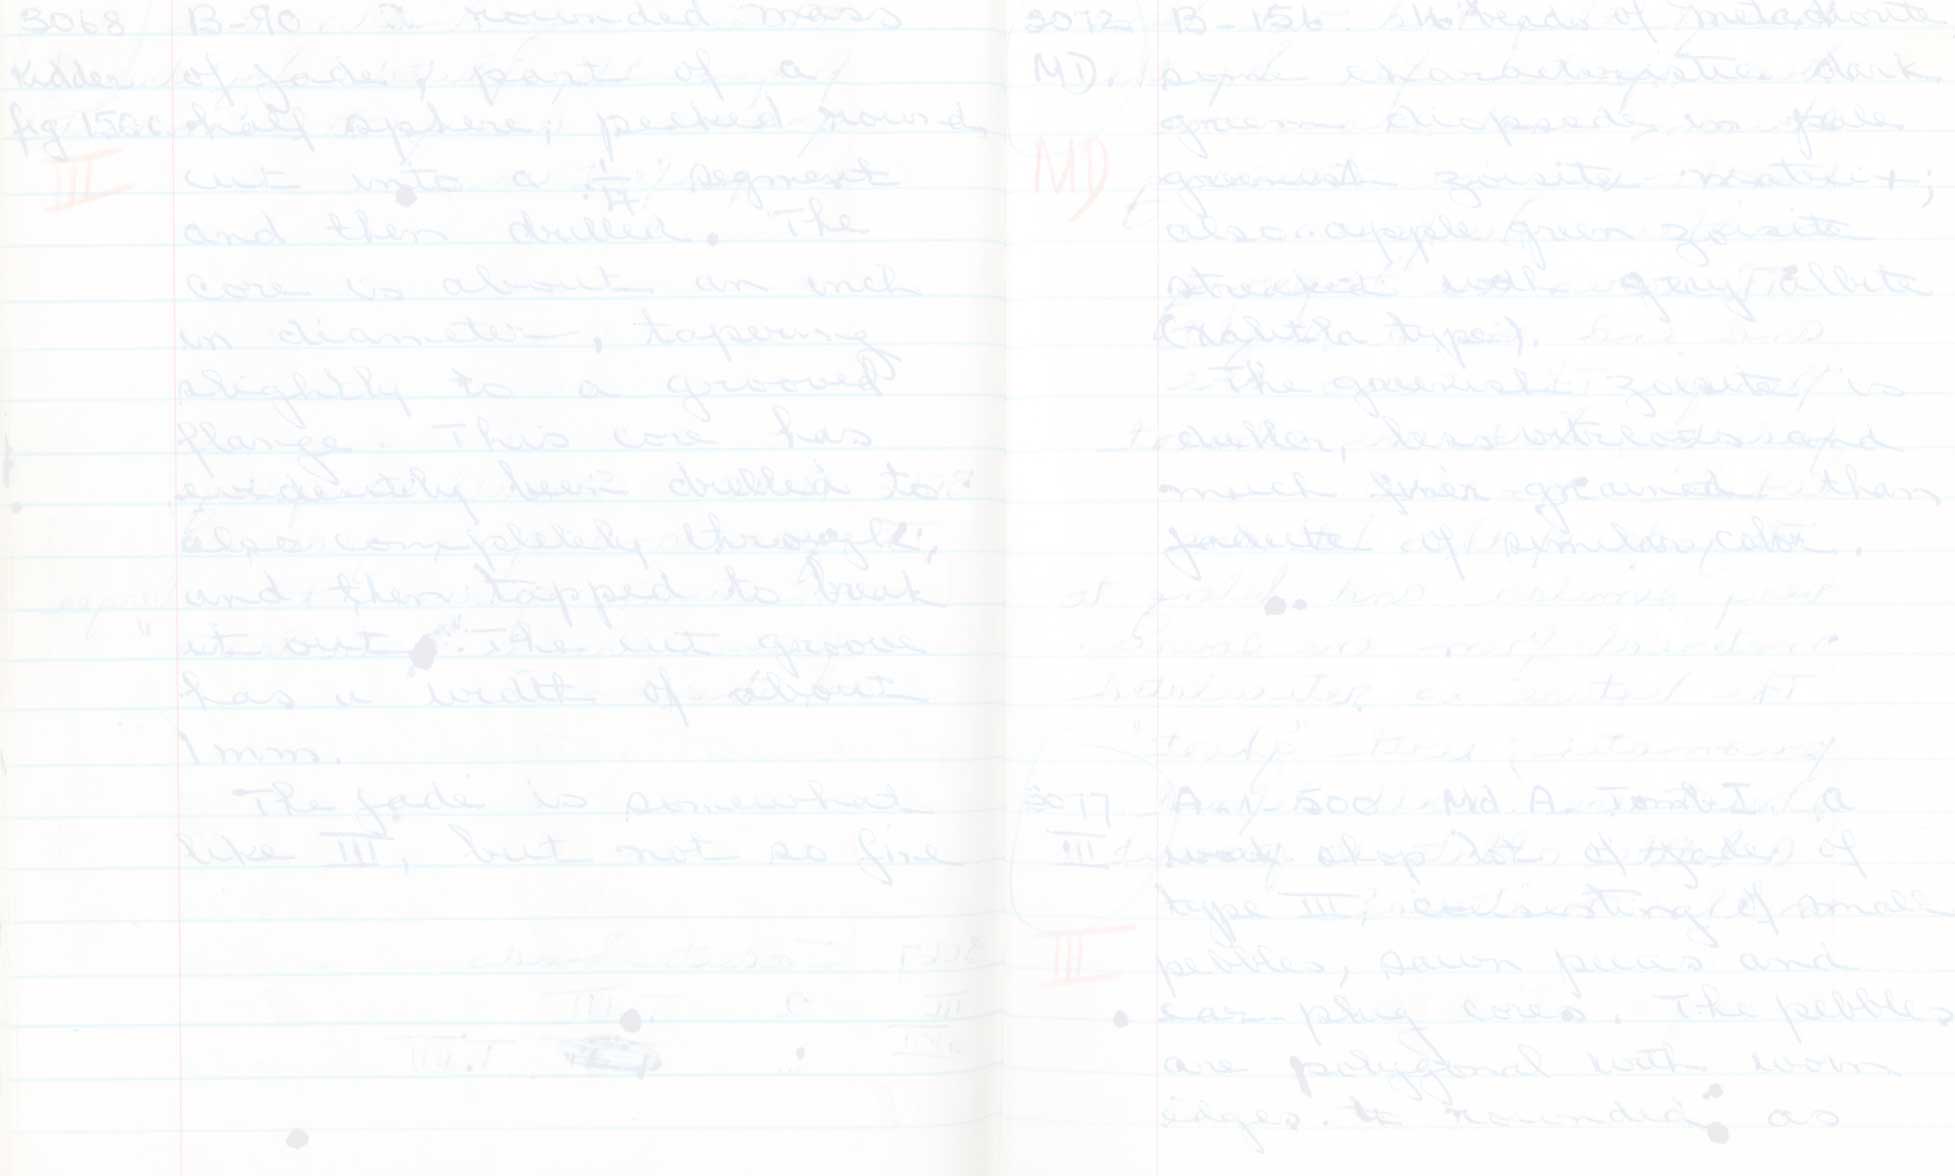 3068 B-90. A rounded mass
Kidder of jade, part of a
fig 150c half sphere; pecked round
III cut into a 1/4 segment
and then drilled. The
core is about an inch
in diameter, tapering
slightly to a grooved
flange. This core has
evidently been drilled to
also completely through,
and then tapped to break
it out. The cut groove
has a width of about
1 mm.
The jade is somewhat
like III, but not so fine
3072 B-156. beads of metadiorite
MD. some characteristic dark
green diopside in pale
MD greenish zoisite matrix;
also apple green zoisite
streaked with gray albite
type).
The greenish zoisite is
duller, less vitreous and
much finer grained than
jadeite of similar color.
3077 A-N-500 Md. A. Tomb I a
III work shop lot of jades of
type III, consisting of small
III pebbles, sawn pieces and
ear-plug cores. The pebbles
are polygonal with worn
edges. rounded as